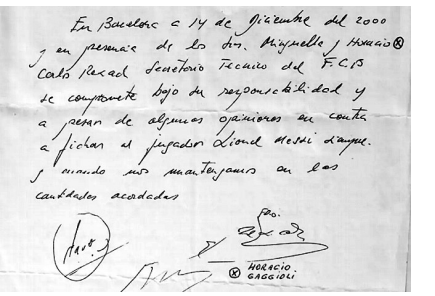 En Barcelona a 14 de Diciembre del 2000
y en presencia de los Sres. Minguella y Horacio ⓧ
Carles Rexach Secretario Técnico del F.C.B
se compromete bajo su responsabilidad y
a pesar de algunas opiniones en contra
a fichar al jugador Lionel Messi
y cuando nos mantengamos en las
cantidades acordadas
ⓧ HORACIO
GAGGIOLI